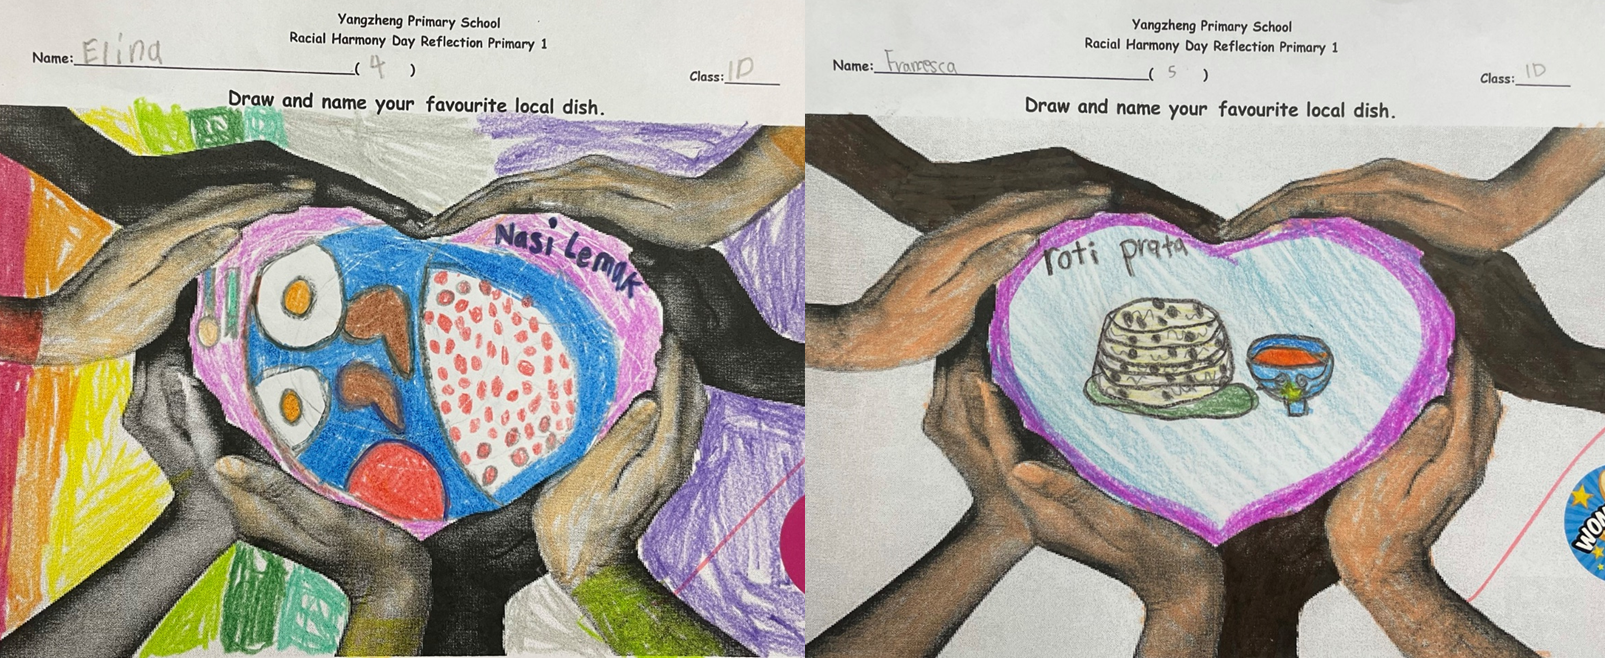 Yangzheng Primary School
Racial Harmony Day Reflection Primary 1
Name: Elina ( 4 ) Class: 1D
Draw and name your favourite local dish.
Nasi Lemak
Yangzheng Primary School
Racial Harmony Day Reflection Primary 1
Name: Framesca ( 5 ) Class: 1D
Draw and name your favourite local dish.
roti prata